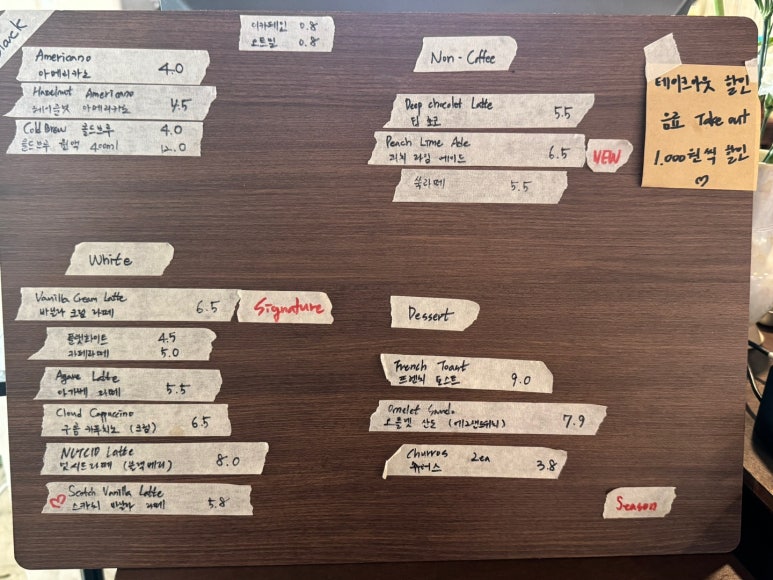 Black
Americano
아메리카노 4.0
Hazelnut Americano
헤이즐넛 아메리카노 4.5
Cold Brew 콜드브루 4.0
콜드브루 원액 400ml 12.0
디카페인 0.8
오트밀 0.8
Non-Coffee
Deep chocolet Latte
딥 초코 5.5
Peach Lime Ade
피치 라임 에이드 6.5 NEW
쑥라떼 5.5
테이크아웃 할인
음료 Take out
1.000원씩 할인
White
Vanilla Cream Latte
바닐라 크림 라떼 6.5 Signature
플랫화이트 4.5
카페라떼 5.0
Agave Latte
아가베 라떼 5.5
Cloud Cappuccino
구름 카푸치노 (크림) 6.5
NUTCID Latte
넛시드라떼 8.0
Scotch Vanilla Latte
스카치 바닐라 라떼 5.8
Dessert
French Toast
프렌치 토스트 9.0
Omelet Sando
오믈렛 산도 (에그샌드위치) 7.9
Churros 2ea
츄러스 3.8
Season